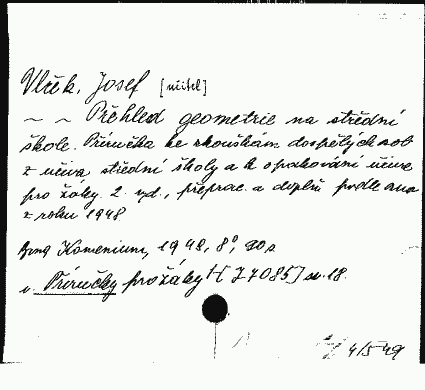 Vlček, Josef [učitel]
~ ~ Přehled geometrie na střední
škole. Příručka ke zkouškám dospělých osob
z učiva střední školy a k opakování učiva
pro žáky. 2. vyd., přeprac. a doplň. podle
z roku 1948
Brno Komenium, 1948, 8°, 80 s
v. Příručky pro žáky [J 7085] sv. 18.
4/5 49